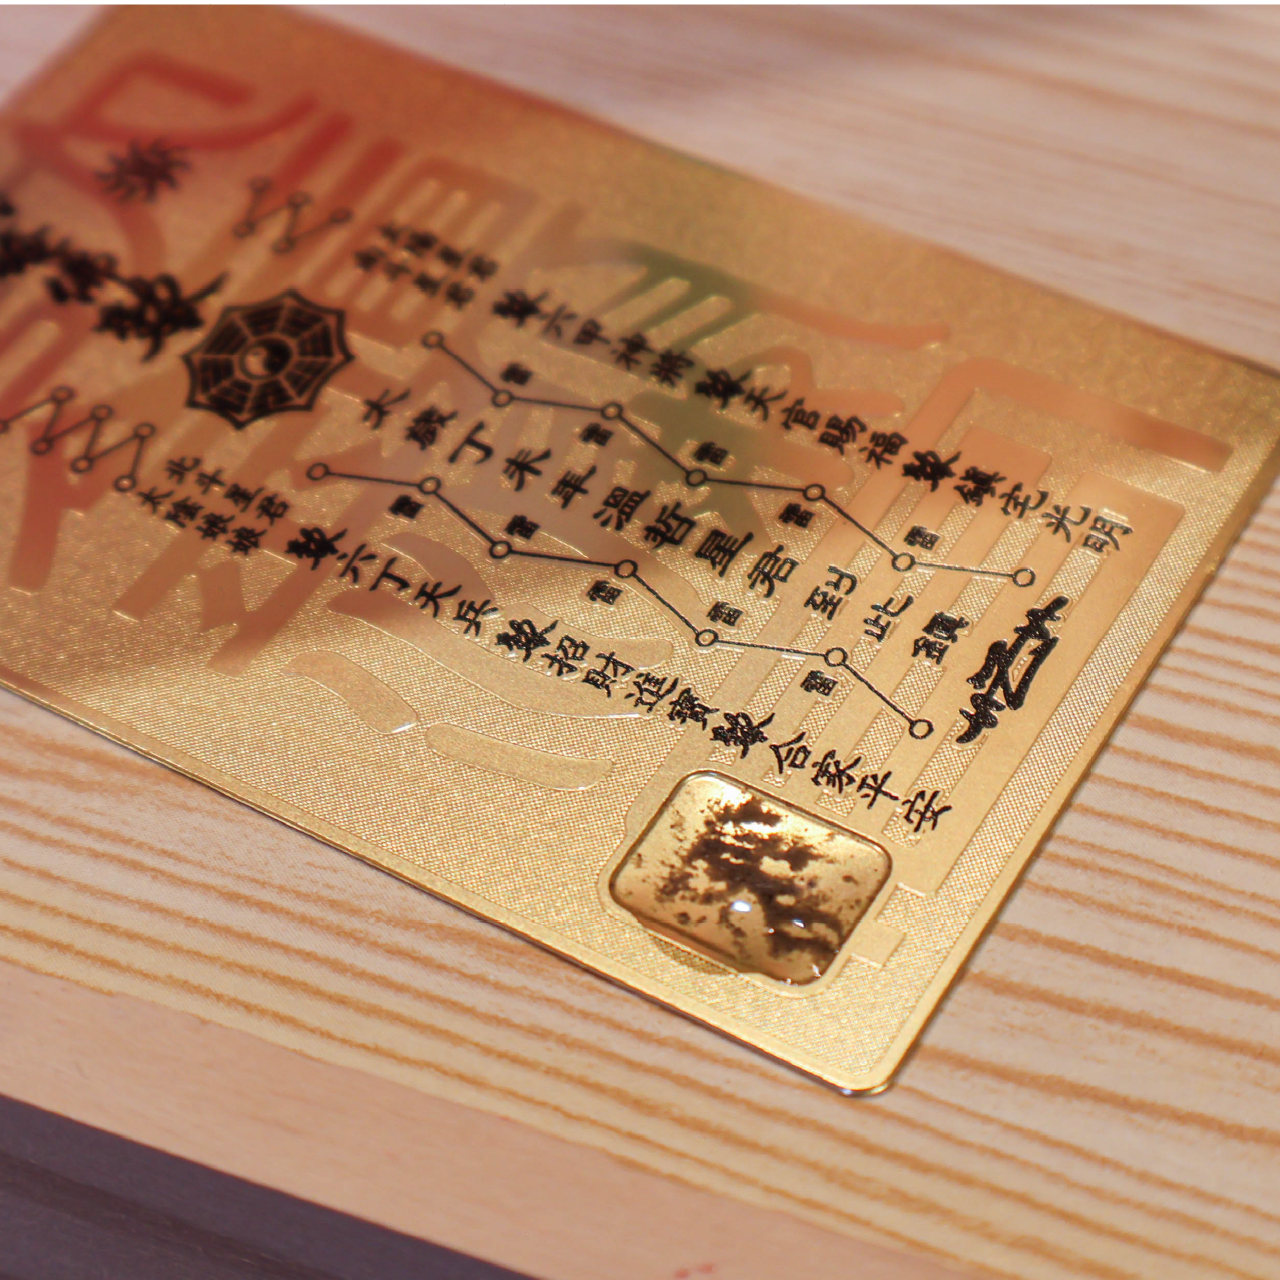 太陽星君
南斗星君
敕六甲神將敕天官賜福敕鎮宅光明
雷
雷
雷
雷
雷
太歲丁未年溫哲星君到此鎮
雷
雷
雷
雷
雷
北斗星君
太陰娘娘
敕六丁天兵敕招財進寶敕合家平安